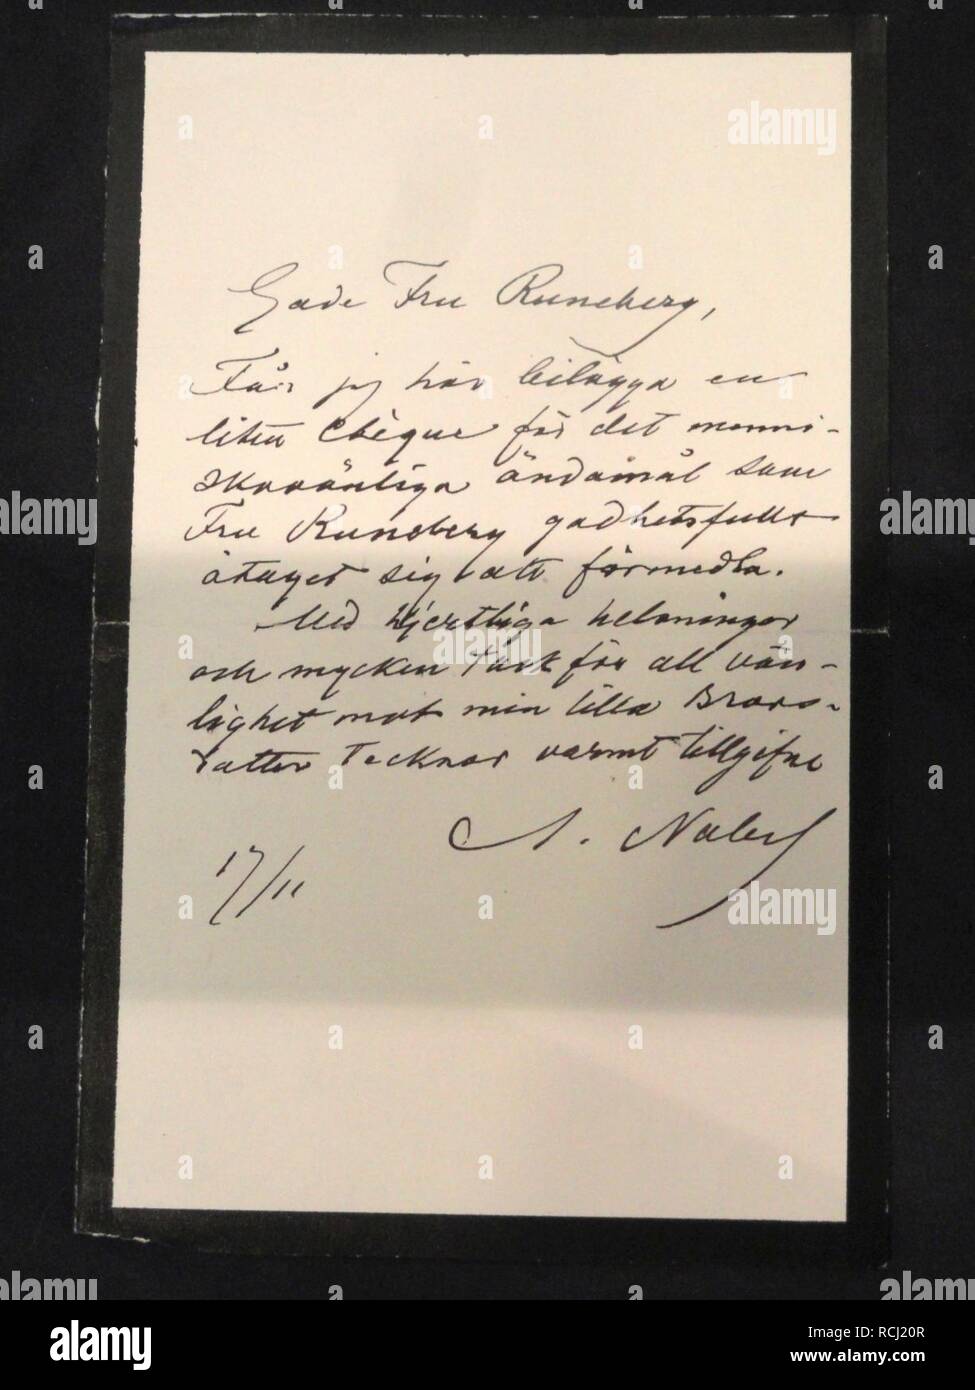 Goda Fru Runeberg,
Får jag här bilägga en
liten Chèque för det menni-
skovänliga ändamål som
Fru Runeberg godhetsfullt
åtaget sig att förmedla.
Med hjertliga helsningar
och mycken tack för all vän-
lighet mot min lilla Brors-
dotter tecknar varmt tillgifne
A. Nobel
17/11
alamy
Image ID: RCJ20R
www.alamy.com